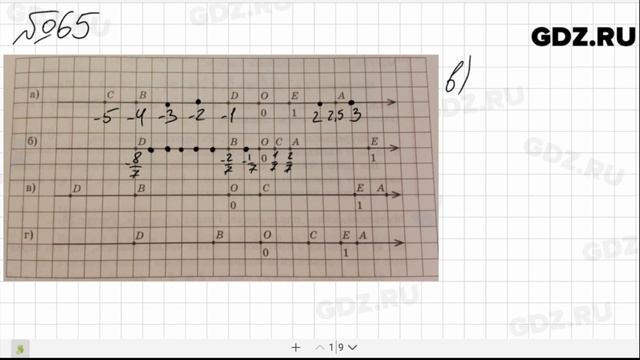 №65
GDZ.RU
в)
а) C B D O E A
-5 -4 -3 -2 -1 0 1 2 2,5 3
б) D B O C A E
-8/7 -2/7 -1/7 0 1/7 2/7 1
в) D B O C E A
0 1
г) D B O C E A
0 1
GDZ.RU
GDZ.RU
+ 1 9